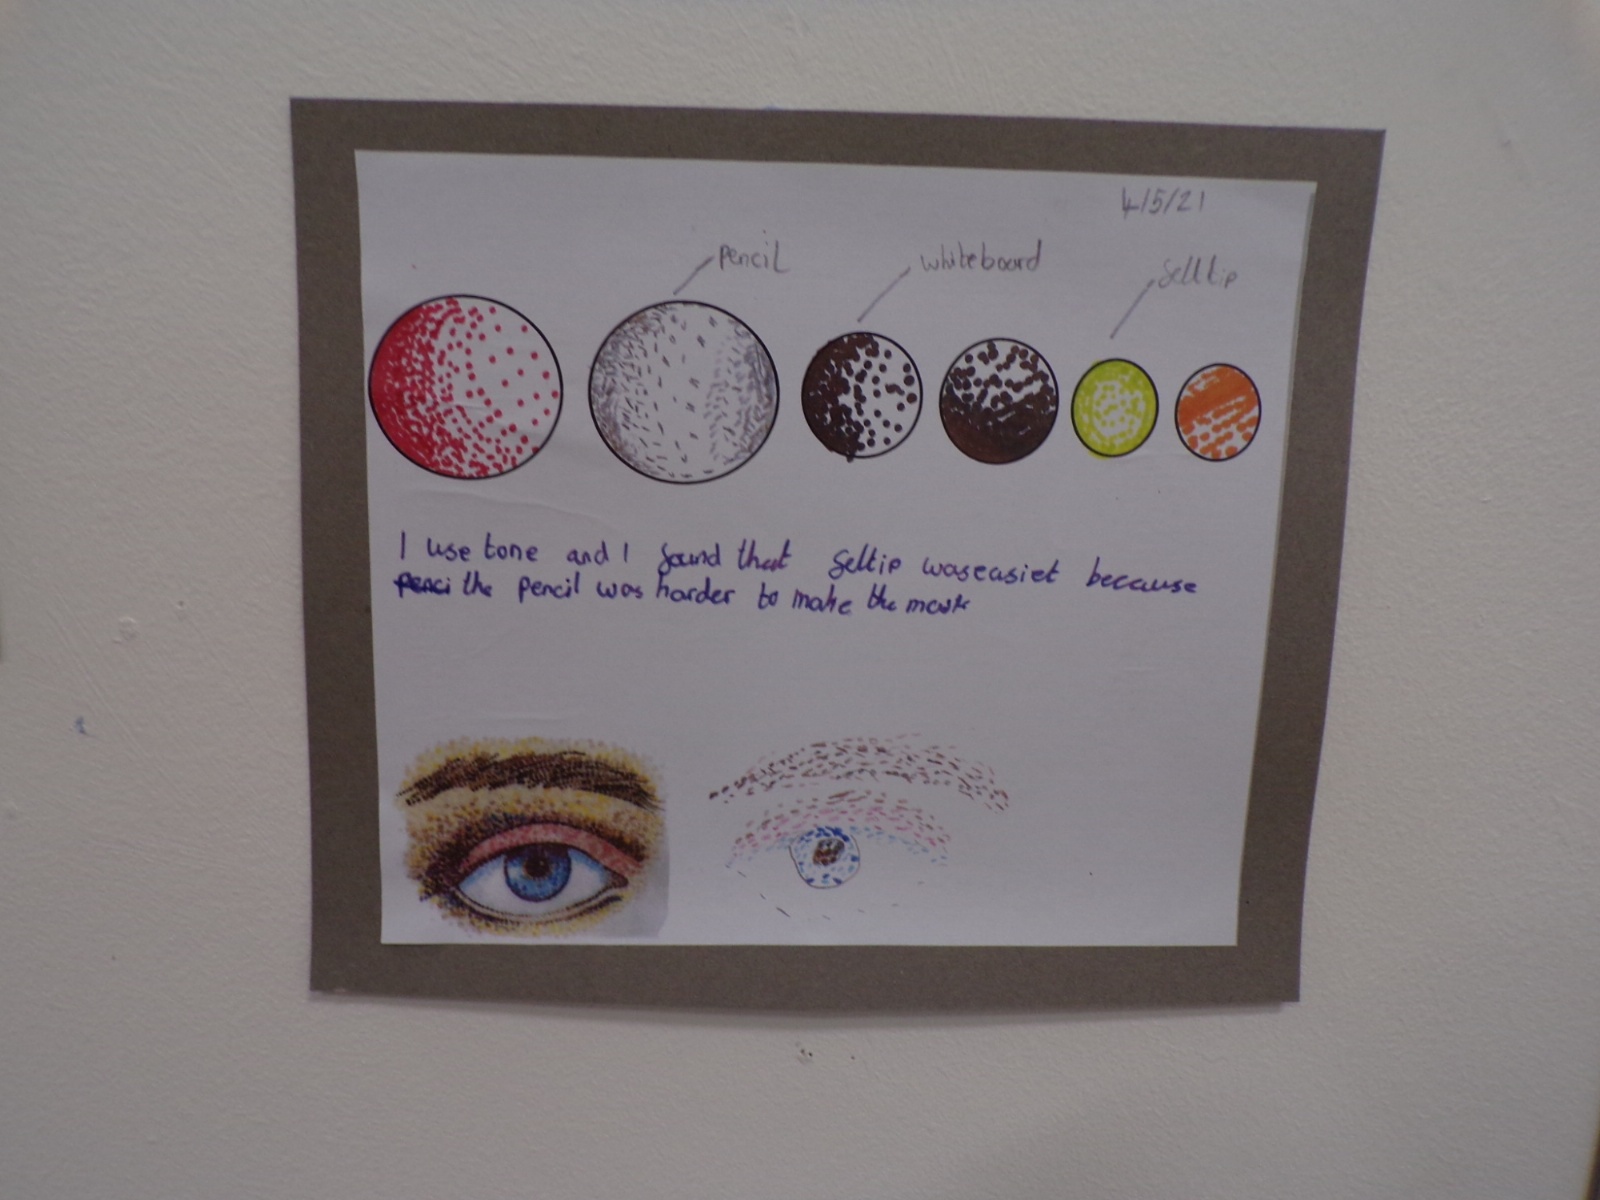 4/5/21
pencil
whiteboard
felltip
I use tone and I found that feltip was easiet because
penci the pencil was harder to make the mark